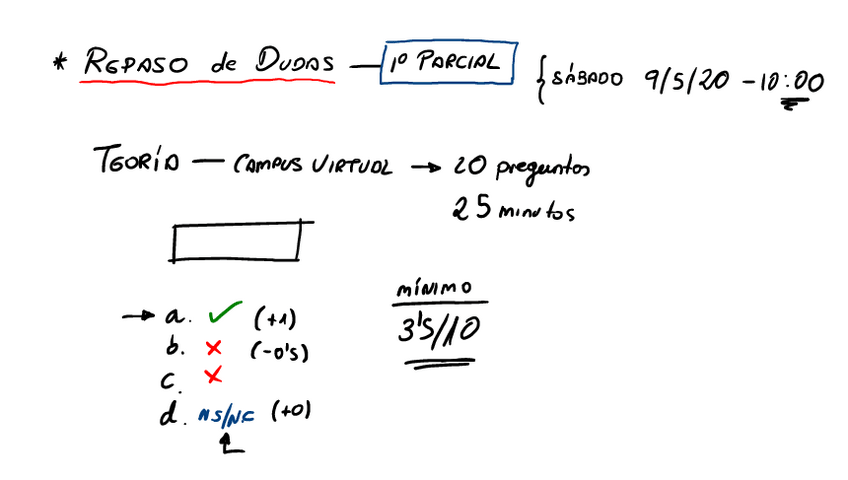 * REPASO de DUDAS — 1º PARCIAL { SÁBADO 9/5/20 - 10:00
TEORÍA — CAMPUS VIRTUAL → 20 preguntas
25 minutos
→ a. ✓ (+1)
b. × (-0's)
c. ×
d. NS/NC (+0)
MÍNIMO
3's/10